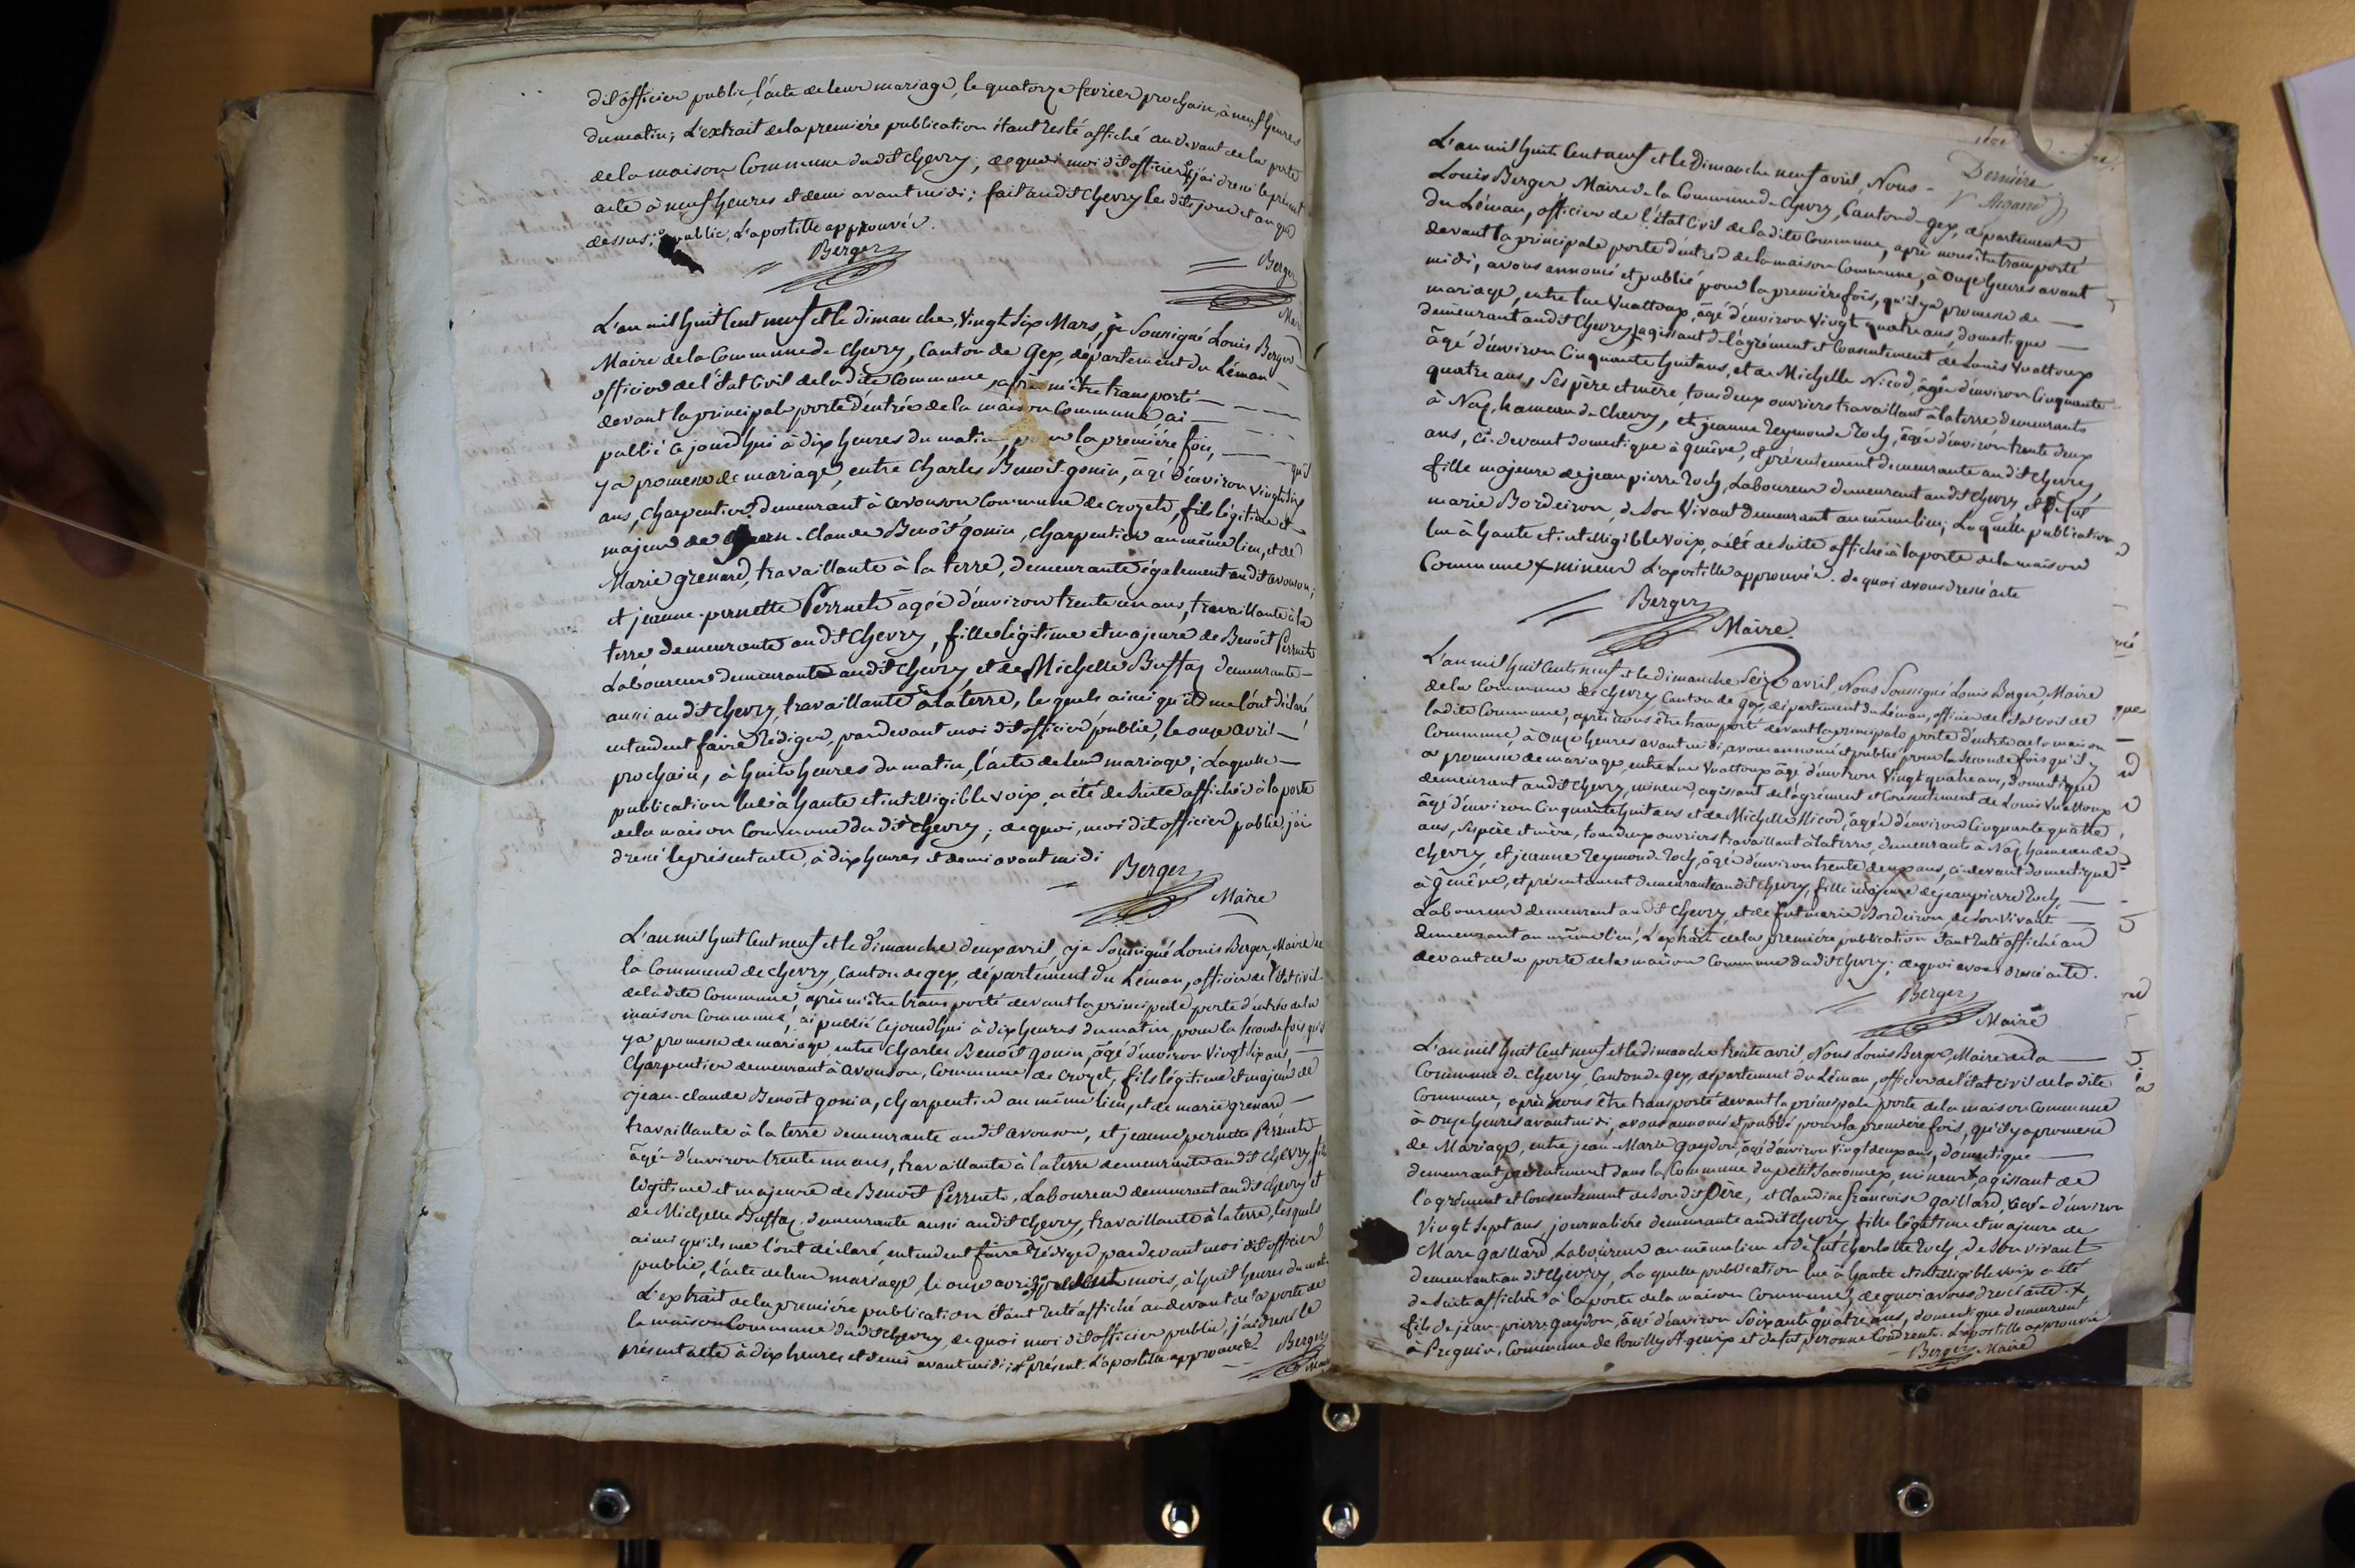 dit officier public, l'acte de leur mariage, le quatorze fevrier prochain, à neuf heures
du matin; L'extrait de la première publication étant resté affiché au devant de la porte
de la maison Commune du dit chevry; de quoi moi dit officier j'ai dressé le présent
acte à neuf heures et demi avant midi; fait au dit chevry les dits jour et an que
dessus; public, L'apostille approuvée.
Berger
Berger
L'an mil huit cent neuf et le dimanche, vingt six Mars, je Soussigné Louis Berger
Maire de la Commune de chevry, Canton de Gex, département du Léman
officier de l'état Civil de la dite Commune, après m'être transporté
devant la principale porte d'entrée de la maison Commune, ai
publié ce jourd'hui à dix heures du matin, pour la première fois, qu'il
y a promesse de mariage, entre Charles Benoit gonin, âgé d'environ vingt six
ans, Charpentier demeurant à avouson Commune de crozet, fils légitime et
majeur de jean-claude Benoît gonin, Charpentier au même lieu, et de
Marie grenard, travaillante à la terre, demeurante également au dit avouson;
et jeanne-pernette Perruet âgée d'environ trente un ans, travaillante à la
terre demeurante au dit Chevry, fille légitime et majeure de Benoit Perruet
Laboureur demeurante au dit Chevry et de Michelle Buffaz demeurante
aussi au dit chevry, travaillante à la terre, lesquels ainsi qu'ils me l'ont déclaré
entendent faire rédiger, pardevant moi dit officier public, le onze avril
prochain, à huit heures du matin, l'acte de leur mariage; Laquelle
publication lue à haute et intelligible voix, a été de suite affichée à la porte
de la maison Commune du dit chevry; de quoi, moi dit officier public, j'ai
dressé le présent acte, à dix heures et demi avant midi
Berger
Maire
L'an mil huit cent neuf et le dimanche deux avril, je Soussigné Louis Berger, Maire de
la Commune de chevry, Canton de gex, département du Léman, officier de l'état civil
de la dite Commune, après m'être transporté devant la principale porte d'entrée de la
maison Commune, ai publié ce jourd'hui à dix heures du matin, pour la seconde fois qu'il
y a promesse de mariage, entre Charles Benoît gonin, âgé d'environ vingt six ans,
Charpentier demeurant à avouson, Commune de Crozet, fils légitime et majeur de
jean-claude Benoît gonin, charpentier au même lieu, et de marie grenard
travaillante à la terre demeurante au dit avouson, et jeanne pernette Perruet
âgée d'environ trente un ans, travaillante à la terre demeurante au dit Chevry, fille
légitime et majeure de Benoit Perruet, Laboureur demeurant au dit chevry et
de Michelle Buffaz, demeurante aussi au dit chevry, travaillante à la terre, lesquels
ainsi qu'ils me l'ont déclaré, entendent faire rédiger pardevant moi dit officier
public, l'acte de leur mariage, le onze avril mois, à huit heures du matin
L'extrait de la première publication étant resté affiché au devant de la porte de
la maison Commune du dit chevry, de quoi moi dit officier public, j'ai dressé le
présent acte à dix heures et demi avant midi; présent. L'apostille approuvée
Berger
Maire
Dernière
L'an mil huit cent neuf et le Dimanche neuf avril, Nous
Louis Berger Maire de la Commune de chevry, Canton de gex, département
du Léman, officier de l'état Civil de la dite Commune, après nous être transporté
devant la principale porte d'entrée de la maison Commune, à Onze heures avant
midi, avons annoncé et publié pour la première fois, qu'il y a promesse de
mariage, entre Luc Vuattoux, âgé d'environ vingt quatre ans, domestique
demeurant au dit Chevry, agissant de l'agrément et Consentement de Louis Vuattoux
âgé d'environ Cinquante huit ans, et de Michelle Nicod, âgée d'environ Cinquante
quatre ans, Ses père et mère, tous deux ouvriers travaillant à la terre demeurants
à Naz, hameau de Chevry, et jeanne Reymonde Roch, âgée d'environ trente deux
ans, ci-devant domestique à genêve, et présentement demeurante au dit chevry,
fille majeure de jean pierre Roch, Laboureur demeurant au dit chevry, et de fut
marie Bordeiron, de Son Vivant demeurant au même lieu; Laquelle publication
lue à haute et intelligible voix, a été de suite affichée à la porte de la maison
Commune + mineur L'apostille approuvée. de quoi avons dressé acte
Berger
Maire.
L'an mil huit cent neuf et le dimanche Seize avril, Nous Soussigné Louis Berger, Maire
de la Commune de chevry Canton de gex, département du Léman, officier de l'état civil de
la dite Commune, après nous être transporté devant la principale porte d'entrée de la maison
Commune, à Onze heures avant midi, avons annoncé et publié pour la seconde fois qu'il y
a promesse de mariage, entre Luc Vuattoux âgé d'environ Vingt quatre ans, domestique
demeurant au dit chevry, mineur, agissant de l'agrément et Consentement de Louis Vuattoux
âgé d'environ Cinquante huit ans et de Michelle Nicod, âgée d'environ Cinquante quatre
ans, Ses père et mère, tous deux ouvriers travaillant à la terre, demeurants à Naz, hameau de
Chevry, et jeanne Reymonde Roch, âgée d'environ trente deux ans, ci-devant domestique
à genêve, et présentement demeurante au dit chevry, fille majeure de jean pierre Roch,
Laboureur demeurant au dit Chevry, et de fut marie Bordeiron, de Son Vivant
demeurant au même lieu, L'extrait de la première publication étant resté affiché au
devant de la porte de la maison Commune du dit Chevry; de quoi avons dressé acte.
Berger
Maire
L'an mil huit cent neuf et le dimanche trente avril, Nous Louis Berger, Maire de la
Commune de Chevry, Canton de Gex, département du Léman, officier de l'état civil de la dite
Commune, après nous être transporté devant la principale porte de la maison Commune
à onze heures avant midi, avons annoncé et publié pour la première fois, qu'il y a promesse
de Mariage, entre jean-Marie gaydon, âgé d'environ vingt deux ans, domestique
demeurant présentement dans la Commune du petit Saconnex, mineur +, agissant de
l'agrément et Consentement de Son dit Père, et Claudine françoise gaillard, âgée d'environ
Vingt sept ans, journalière demeurante au dit chevry, fille légitime et majeure de
Marc gaillard, Laboureur au même lieu et de fut charlotte Roch, de Son vivant
demeurant au dit Chevry, Laquelle publication lue à haute et intelligible voix a été
de Suite affichée à la porte de la maison Commune, de quoi avons dressé acte. +
fils de jean-pierre gaydon, âgé d'environ Soixante quatre ans, domestique demeurant
à Pregnin, Commune de Pouilly St genix et de fut peronne Coudrent. L'apostille approuvée
Berger Maire